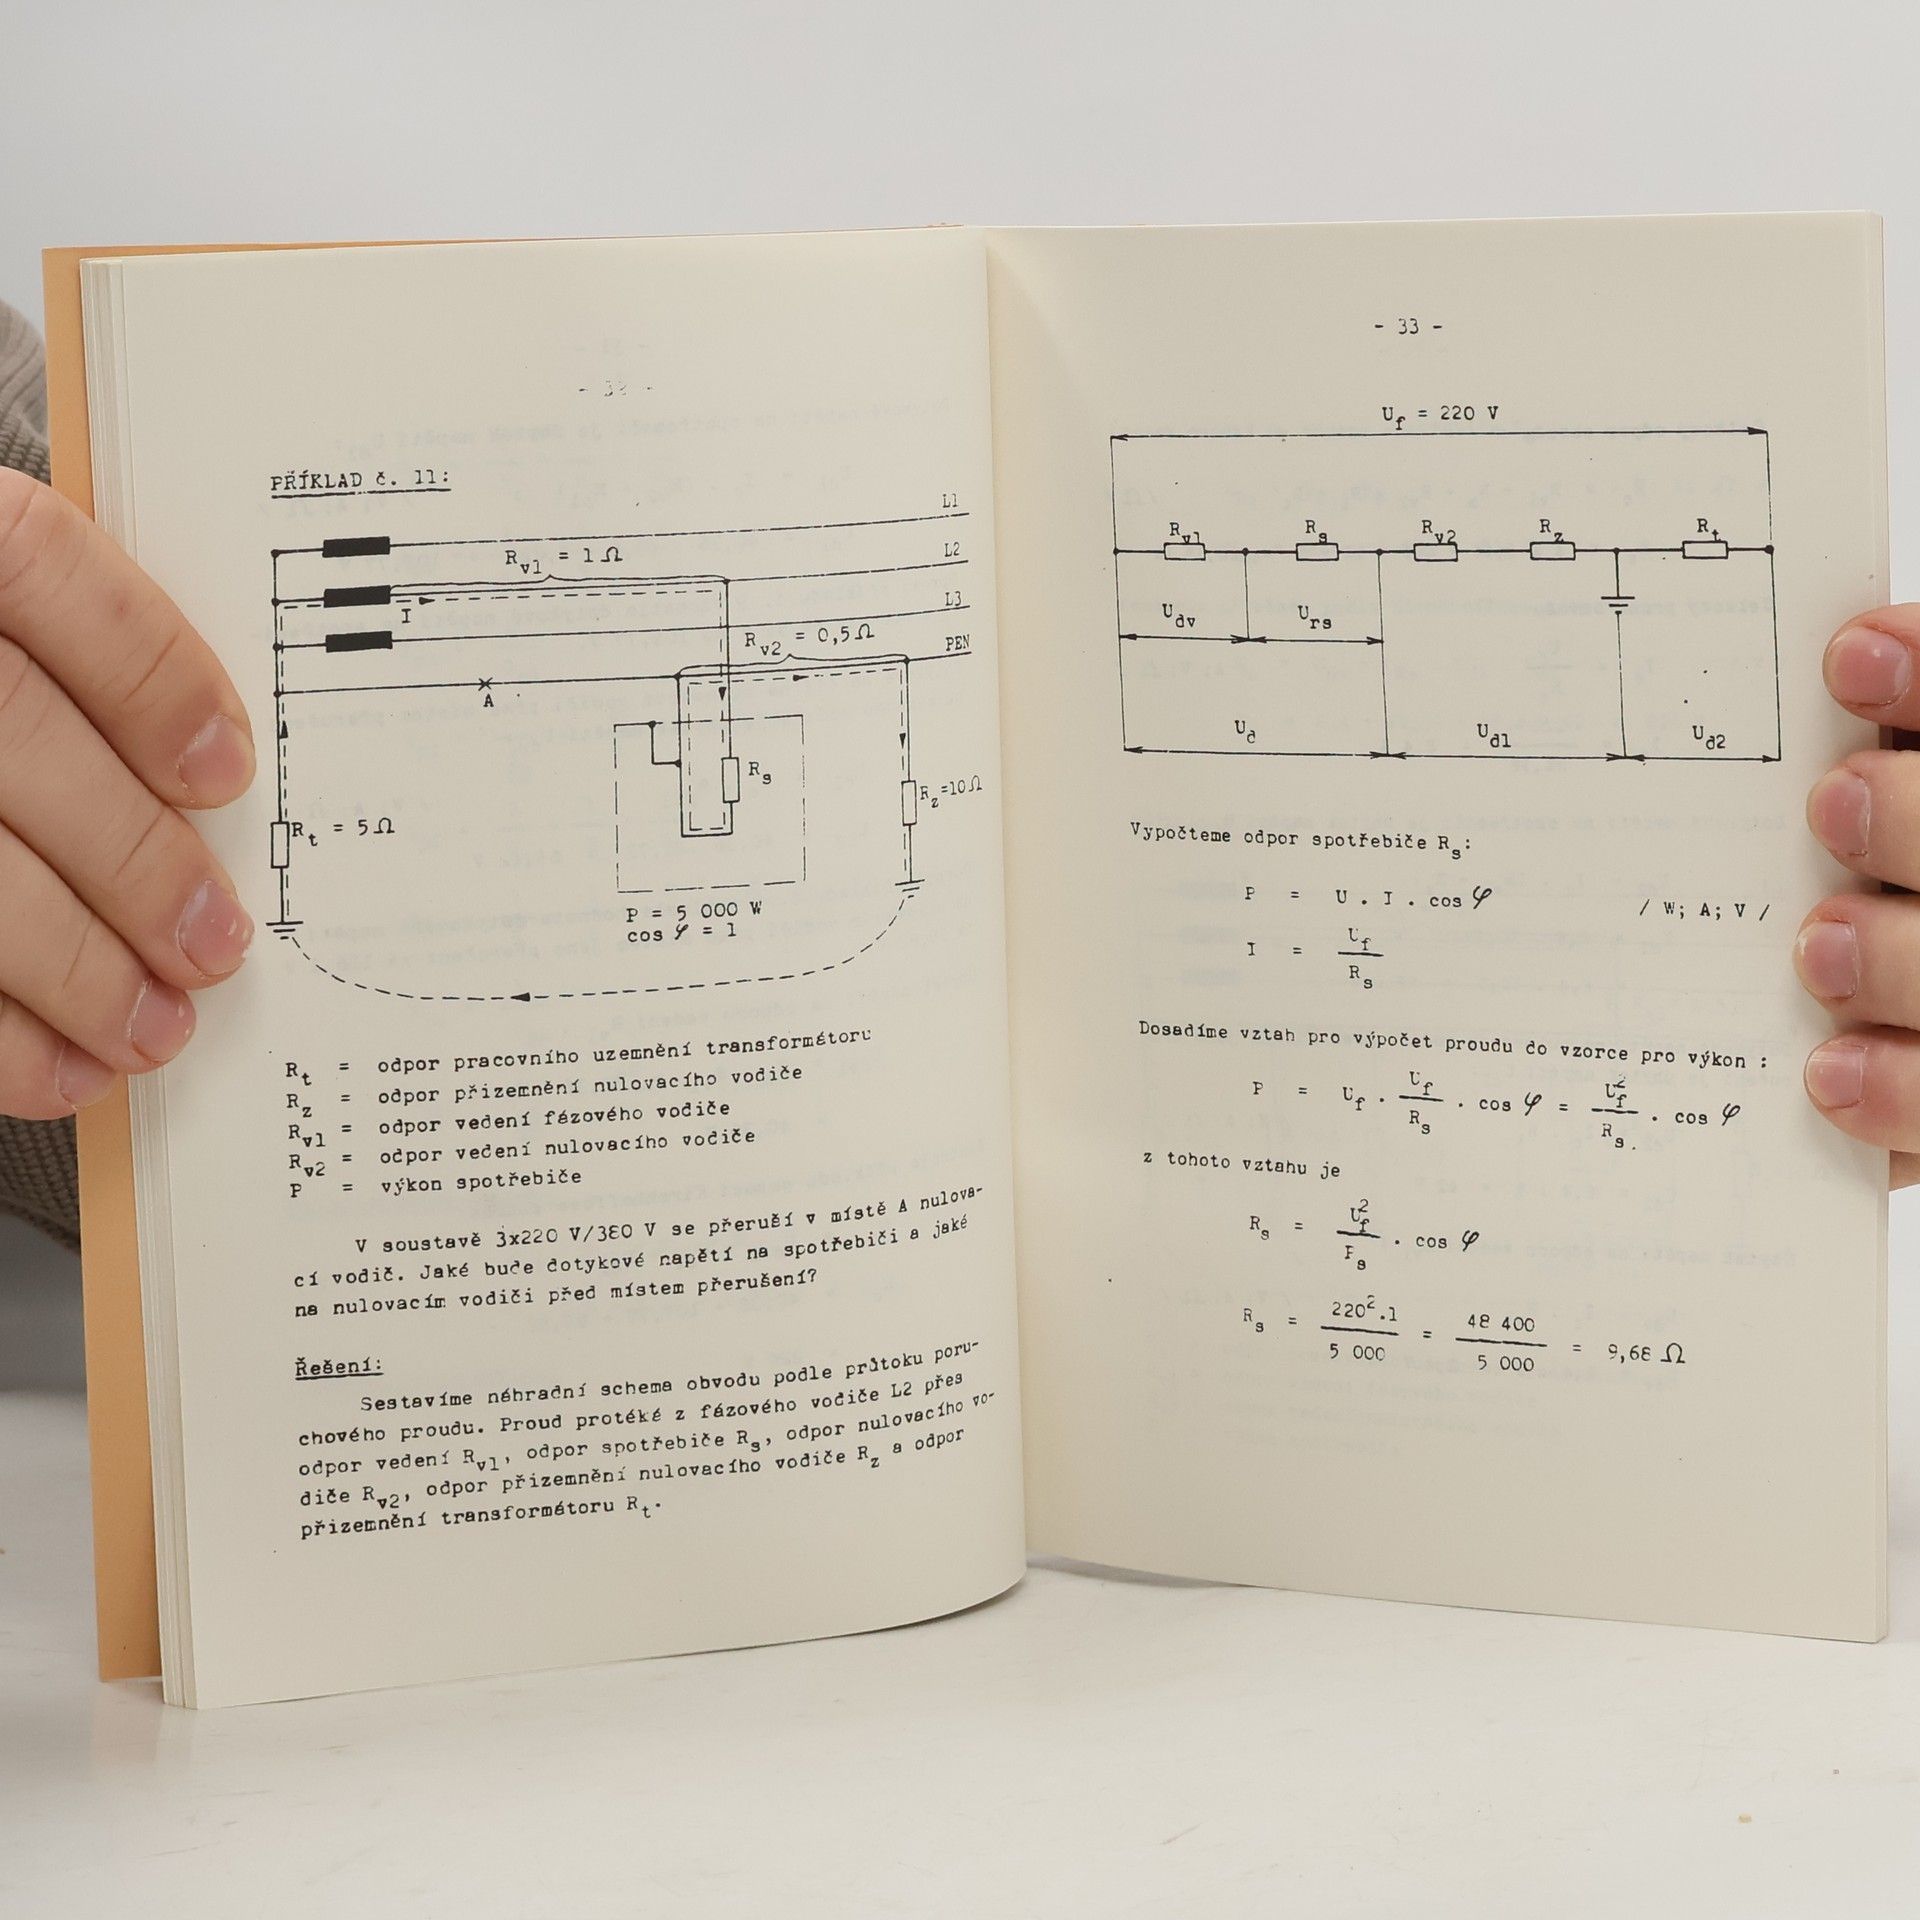 - 32 -
PŘÍKLAD č. 11:
L1
R_v1 = 1 Ω
L2
I
L3
R_v2 = 0,5 Ω
PEN
A
R_s
R_z=10 Ω
R_t = 5 Ω
P = 5 000 W
cos φ = 1
R_t = odpor pracovního uzemnění transformátoru
R_z = odpor přizemnění nulovacího vodiče
R_v1 = odpor vedení fázového vodiče
R_v2 = odpor vedení nulovacího vodiče
P = výkon spotřebiče
V soustavě 3x220 V/380 V se přeruší v místě A nulova-
cí vodič. Jaké bude dotykové napětí na spotřebiči a jaké
na nulovacím vodiči před místem přerušení?
Řešení:
Sestavíme náhradní schema obvodu podle průtoku poru-
chového proudu. Proud protéké z fázového vodiče L2 přes
odpor vedení R_v1, odpor spotřebiče R_s, odpor nulovacího vo-
diče R_v2, odpor přizemnění nulovacího vodiče R_z a odpor
přizemnění transformátoru R_t.
- 33 -
U_f = 220 V
R_v1 R_s R_v2 R_z R_t
U_dv U_rs
U_d U_d1 U_d2
Vypočteme odpor spotřebiče R_s:
P = U . I . cos φ / W; A; V /
I = U_f / R_s
Dosadíme vztah pro výpočet proudu do vzorce pro výkon :
P = U_f . U_f / R_s . cos φ = U_f² / R_s . cos φ
z tohoto vztahu je
R_s = U_f² / P_s . cos φ
R_s = 220².1 / 5 000 = 48 400 / 5 000 = 9,68 Ω